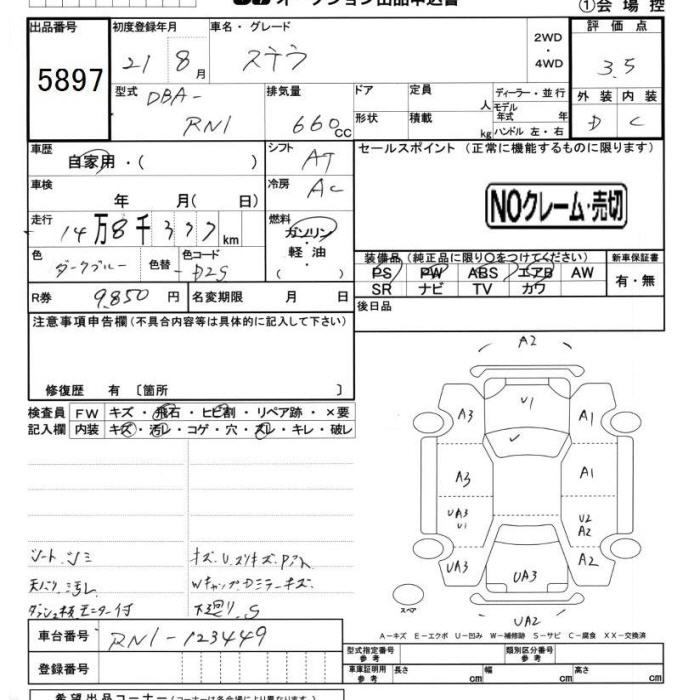 オークション出品申込書
①会場控
出品番号
5897
初度登録年月
21 8月
車名・グレード
ステラ
2WD
・
4WD
評価点
3.5
型式
DBA-
RN1
排気量
660 CC
ドア
形状
定員
人
積載
kg
ディーラー・並行
モデル
年式 年
ハンドル 左・右
外装 内装
D C
車歴
自家用・( )
シフト
AT
セールスポイント (正常に機能するものに限ります)
車検
年 月( 日)
冷房
AC
NOクレーム・売切
走行
14万8千377km
燃料
ガソリン・
軽油・
( )
色
ダークブルー
色替
色コード
D2S
装備品 (純正品に限り〇をつけてください)
新車保証書
PS PW ABS エアB AW
SR ナビ TV カワ
有・無
R券 9,850 円
名変期限 月 日
後日品
注意事項申告欄(不具合内容等は具体的に記入して下さい)
修復歴 有 〔箇所 〕
検査員 FW キズ・飛石・ヒビ割・リペア跡・×要
記入欄 内装 キズ・汚レ・コゲ・穴・スレ・キレ・破レ
A2
A3 U1 A1
A3 A1
UA3
U1
U2
A2
UA3 UA3 A2
スペア
UA2
シートシミ
天バリ汚レ
キズ.U.スリキズ.
下廻り.S
A-キズ E-エクボ U-凹み W-補修跡 S-サビ C-腐食 XX-交換済
車台番号 RN1-123449
登録番号
型式指定番号
参考
類別区分番号
参考
車庫証明用
参考
長さ cm 幅 cm 高さ cm
希望出品コーナー(コーナーは各会場により異なります)